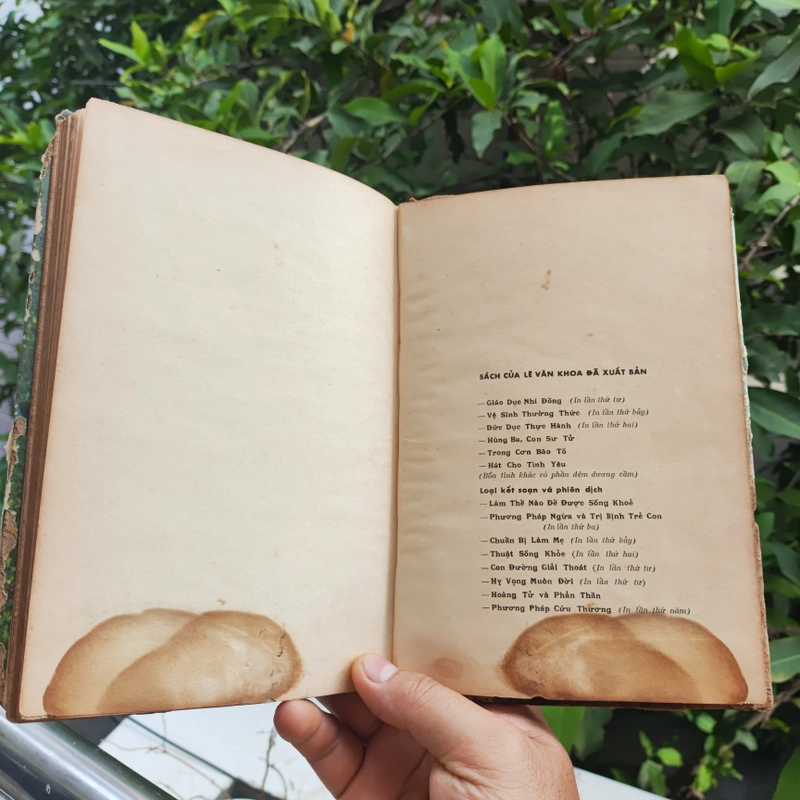 SÁCH CỦA LÊ VĂN KHOA ĐÃ XUẤT BẢN
— Giáo Dục Nhi Đồng (In lần thứ tư)
— Vệ Sinh Thường Thức (In lần thứ bảy)
— Đức Dục Thực Hành (In lần thứ hai)
— Hùng Ba, Con Sư Tử
— Trong Cơn Bão Tố
— Hát Cho Tình Yêu
(Bốn tình khúc có phần đệm dương cầm)
Loại kết soạn và phiên dịch
— Làm Thế Nào Để Được Sống Khoẻ
— Phương Pháp Ngừa và Trị Bịnh Trẻ Con
(In lần thứ ba)
— Chuẩn Bị Làm Mẹ (In lần thứ bảy)
— Thuật Sống Khỏe (In lần thứ hai)
— Con Đường Giải Thoát (In lần thứ tư)
— Hy Vọng Muôn Đời (In lần thứ tư)
— Hoàng Tử và Phản Thần
— Phương Pháp Cứu Thương (In lần thứ năm)